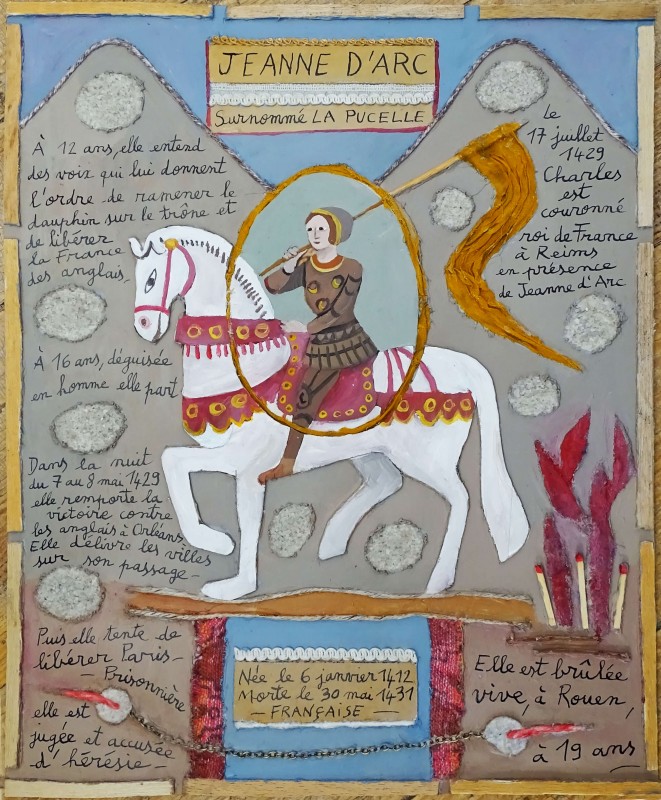 JEANNE D'ARC
Surnommé LA PUCELLE
À 12 ans, elle entend
des voix qui lui donnent
l'ordre de ramener le
dauphin sur le trône et
de libérer
la France
des anglais.
À 16 ans, déguisée
en homme elle part
Dans la nuit
du 7 au 8 mai 1429
elle remporte la
victoire contre
les anglais à Orléans.
Elle délivre les villes
sur son passage -
Puis elle tente de
libérer Paris -
- Prisonnière
elle est
jugée et accusée
- d'hérésie -
Le
17 juillet
1429
Charles
est
couronné
roi de France
à Reims
en présence
de Jeanne d'Arc
Née le 6 janvier 1412
Morte le 30 mai 1431
- FRANÇAISE -
Elle est brûlée
vive, à Rouen,
à 19 ans